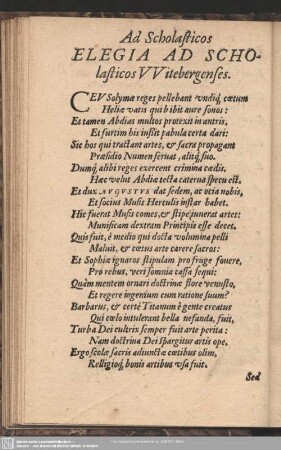 Ad Scholasticos
ELEGIA AD SCHO-
lasticos VVitebergenses.
CEV Solymæ reges pellebant vndiq; cœtum
Heliæ vatis qui bibit aure sonos:
Et tamen Abdias multos protexit in antris,
Et furtim his iussit pabula certa dari:
Sic hos qui tractant artes, & sacra propagant
Præsidio Numen seruat, alitq; suo.
Dumq; alibi reges exercent crimina cædis,
Hæc velut Abdiæ tecta caterua specu est.
Et dux AVGVSTVS dat sedem, ac ocia nobis,
Et socius Musis Herculis instar habet.
Hic fuerat Musis comes, & stipe iuuerat artes:
Munificam dextram Principis esse decet.
Quis fuit, è medio qui docta volumina pelli
Maluit, & cœtus arte carere sacros:
Et Sophiæ ignaros stipulam pro fruge fouere,
Pro rebus, veri somnia cassa sequi:
Quàm mentem ornari doctrinæ flore venusto,
Et regere ingenium cum ratione suum?
Barbarus, & certè Titanum è gente creatus
Qui cœlo intulerant bella nefanda, fuit,
Turba Dei cultrix semper fuit arte perita:
Nam doctrina Dei spargitur artis ope,
Ergo scolæ sacris adiunctæ cœtibus olim,
Relligioq; bonis artibus vsa fuit.
Sed